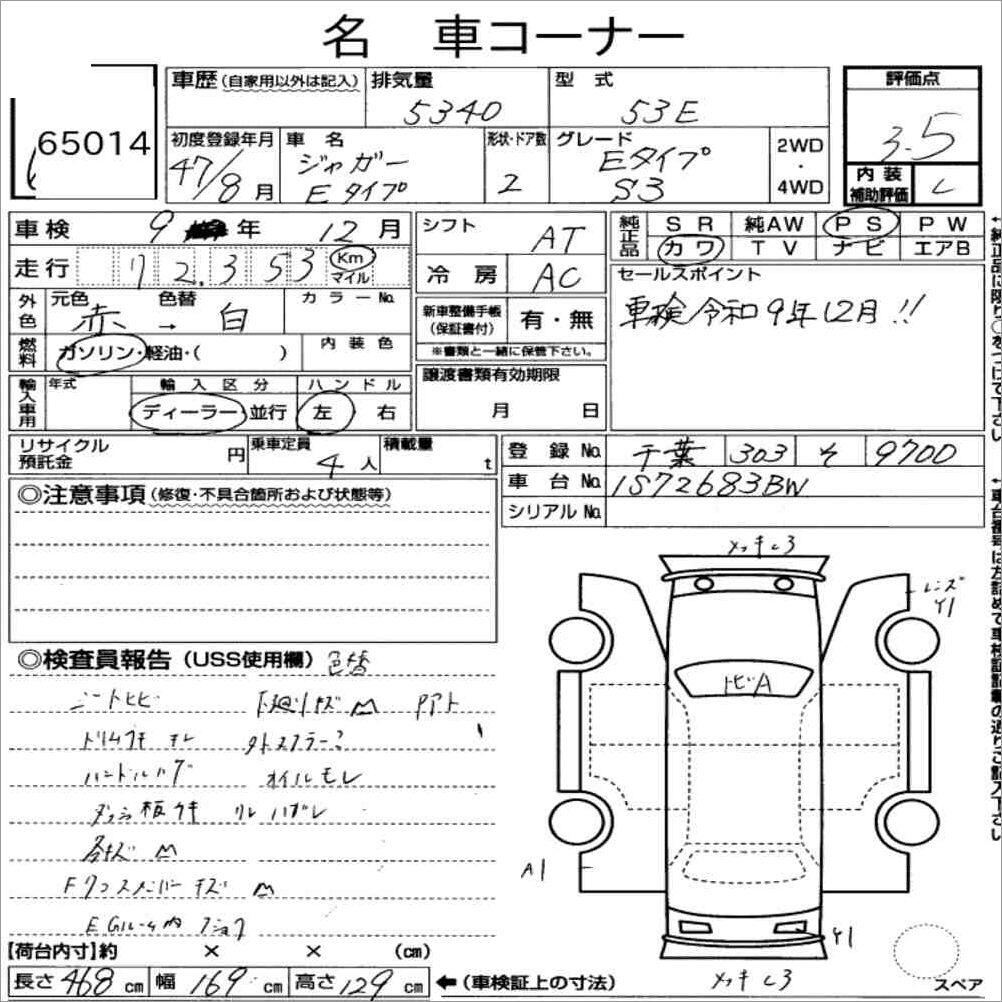 名 車コーナー
65014
車歴(自家用以外は記入) 排気量 5340 型式 53E
評価点 3.5
初度登録年月 47/8月 車名 ジャガー Eタイプ
形状・ドア数 2 グレード Eタイプ S3 2WD・4WD
内装補助評価 C
車検 9年 12月
シフト AT
純正品 SR 純AW PS PW
カワ TV ナビ エアB
走行 72,353 Km マイル
冷房 AC
セールスポイント
車検令和9年12月!!
外色 元色 赤 → 色替 白 カラーNo.
新車整備手帳(保証書付) 有・無
※書類と一緒に保管下さい。
燃料 ガソリン・軽油・( ) 内装色
譲渡書類有効期限
月 日
輸入車用 年式 輸入区分 ハンドル
ディーラー 並行 左 右
リサイクル預託金 円 乗車定員 4人 積載量 t
登録No. 千葉 303 そ 9700
車台No. 1S72683BW
シリアルNo.
◎注意事項(修復・不具合箇所および状態等)
◎検査員報告(USS使用欄) 色替
シートヒビ 下廻りキズ M Pアト
トリムウキ キレ 外トスフラー?
ハンドルハゲ オイルモレ
ダッシュ板ウキ ハガレ
各キズ M
Fクロスメンバーキズ M
EGルーム内
メッキC3
レンズY1
トビA
A1
Y1
メッキC3
スペア
【荷台内寸】約 × × (cm)
長さ468cm 幅169cm 高さ129cm ←(車検証上の寸法)